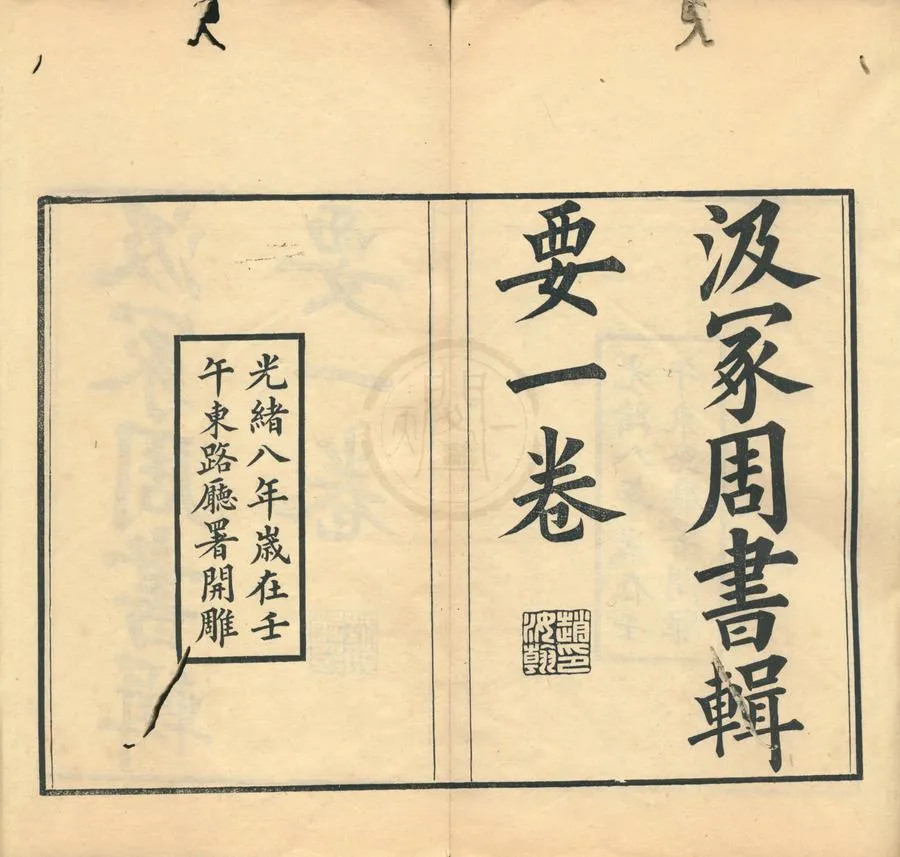 汲冢周書輯
要一卷
趙印汝翰
光緒八年嵗在壬
午東路廳署開雕